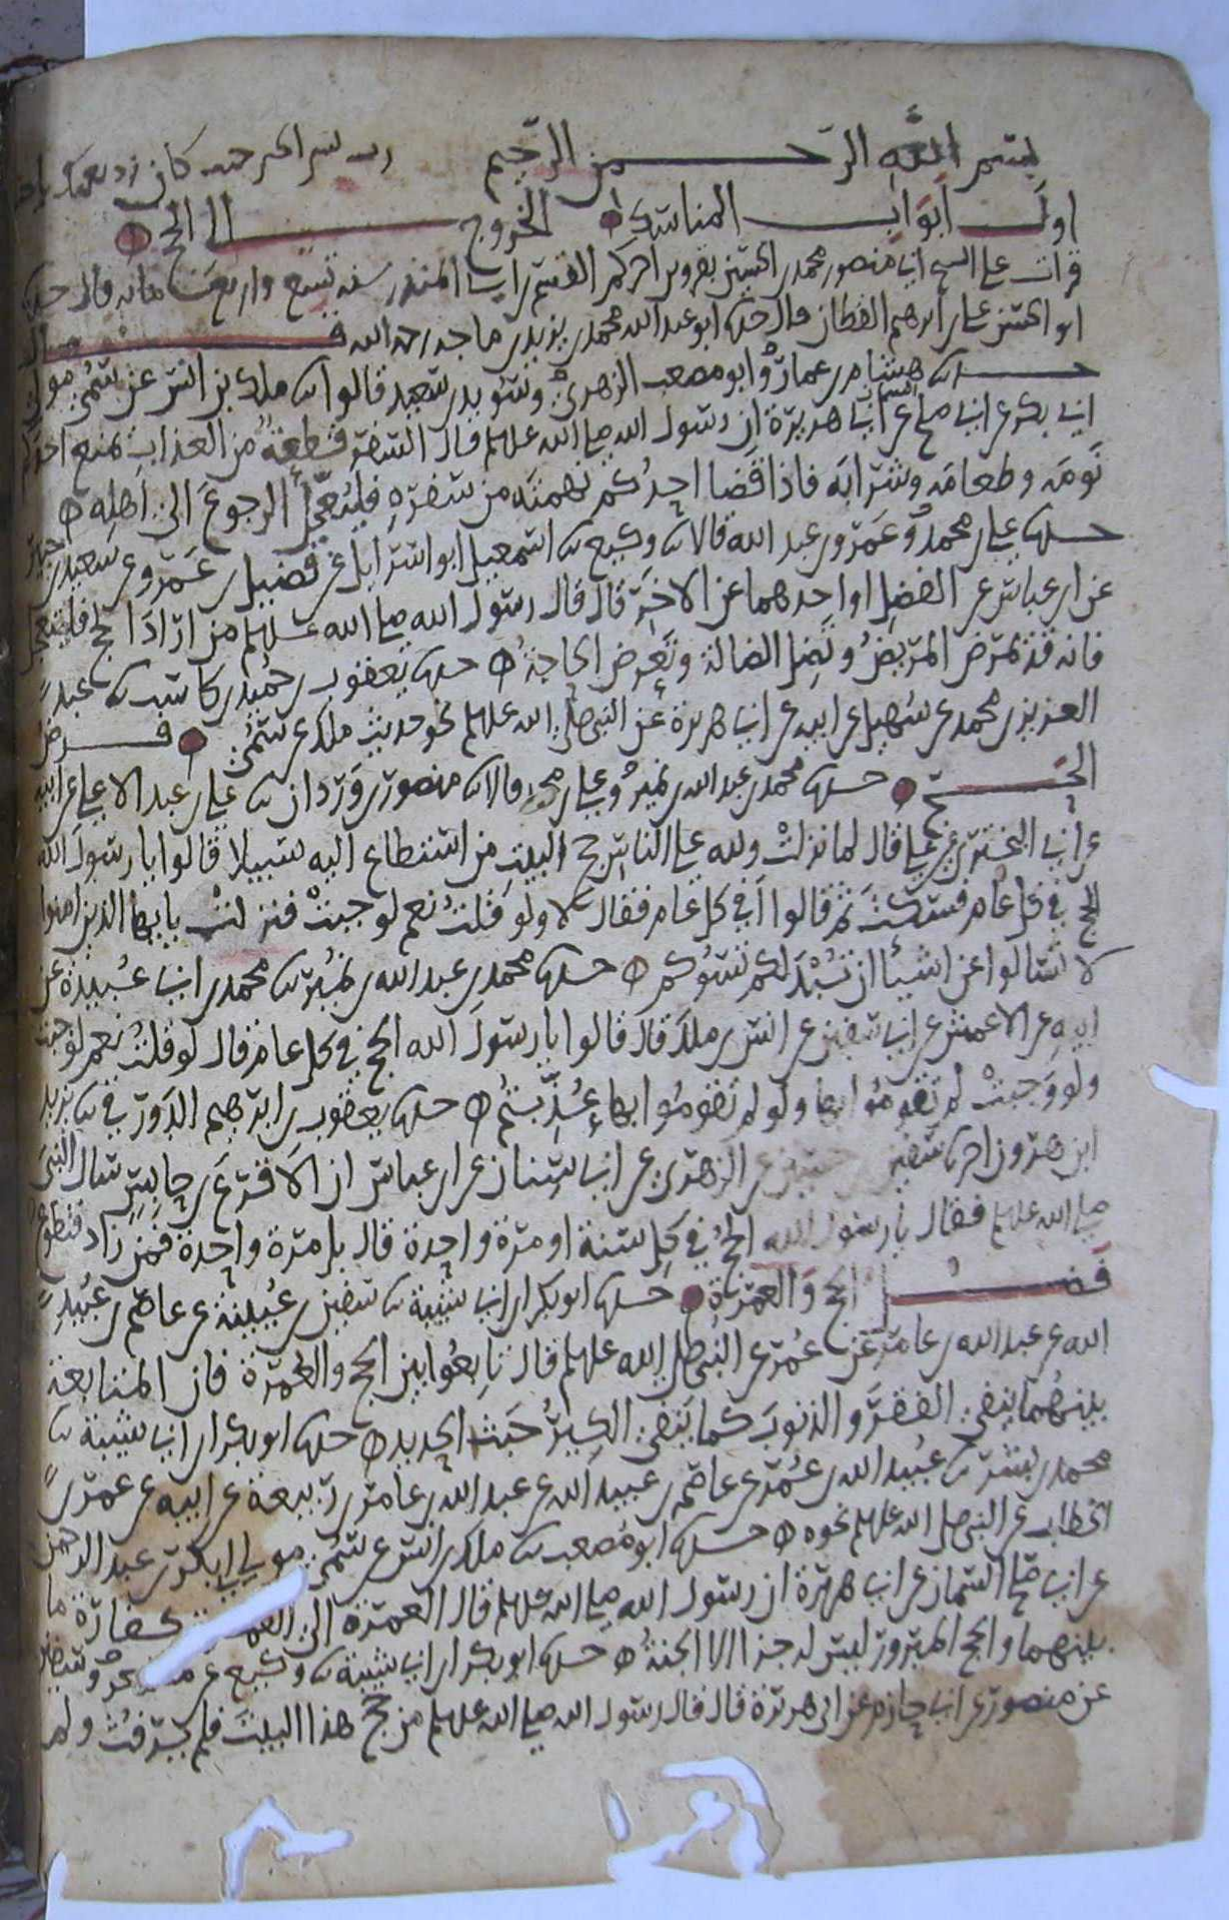 بسم الله الرحمن الرحيم رب يسر
اول ابواب المناسك الخروج الى الحج
قرات على الشيخ ابي منصور محمد بن الحسين بقزوين اخبركم القسم بن ابي المنذر سنه تسع واربع مائه قال حدثنا
ابو الحسن علي بن ابرهيم القطان قال حدثنا ابو عبد الله محمد بن يزيد بن ماجه رحمه الله قال
حدثنا هشام بن عمار وابو مصعب الزهري وسويد بن سعيد قالوا ثنا ملك بن انس عن سمي مولى
ابي بكر عن ابي صلح السمان عن ابي هريرة ان رسول الله صلى الله عليه وسلم قال السفر قطعة من العذاب يمنع احدكم
نومه وطعامه وشرابه فاذا قضا احدكم نهمته من سفره فليعجل الرجوع الى اهله
حدثنا علي بن محمد وعمرو بن عبد الله قالا ثنا وكيع ثنا اسمعيل ابو اسرايل عن فضيل بن عمرو عن سعيد بن جبير
عن ابن عباس عن الفضل او احدهما عن الاخر قال قال رسول الله صلى الله عليه وسلم من اراد الحج فليتعجل
فانه قد يمرض المريض وتضل الضالة وتعرض الحاجة حدثنا يعقوب بن حميد بن كاسب ثنا عبد
العزيز بن محمد عن سهيل عن ابيه عن ابي هريرة عن النبي صلى الله عليه وسلم نحو حديث ملك عن سمي فرض
الحج حدثنا محمد بن عبد الله بن نمير وعلي بن محمد قالا ثنا منصور بن وردان ثنا علي بن عبد الاعلى عن ابيه
عن ابي البختري عن علي قال لما نزلت ولله على الناس حج البيت من استطاع اليه سبيلا قالوا يا رسول الله
الحج في كل عام فسكت ثم قالوا افي كل عام فقال لا ولو قلت نعم لوجبت فنزلت يا يها الذين امنوا
لا تسالوا عن اشيا ان تبد لكم تسوكم حدثنا محمد بن عبد الله بن نمير ثنا محمد بن ابي عبيدة عن
ابيه عن الاعمش عن ابي سفين عن انس بن ملك قال قالوا يا رسول الله الحج في كل عام قال لو قلت نعم لوجبت
ولو وجبت لم تقوموا بها ولو لم تقوموا بها عذبتم حدثنا يعقوب بن ابرهيم الدورقي ثنا يزيد
ابن هرون اخبرنا سفين بن حسين عن الزهري عن ابي سنان عن ابن عباس ان الاقرع بن حابس سال النبي
صلى الله عليه وسلم فقال يا رسول الله الحج في كل سنة او مرة واحدة قال بل مرة واحدة فمن زاد فتطوع
فضل الحج والعمرة حدثنا ابو بكر بن ابي شيبة ثنا سفين بن عيينة عن عاصم بن عبيد
الله عن عبد الله بن عامر عن عمر عن النبي صلى الله عليه وسلم قال تابعوا بين الحج والعمرة فان المتابعة
بينهما ينفي الفقر والذنوب كما ينفي الكير خبث الحديد حدثنا ابو بكر بن ابي شيبة ثنا
محمد بن بشر ثنا عبيد الله بن عمر عن عاصم بن عبيد الله عن عبد الله بن عامر بن ربيعة عن ابيه عن عمر بن
الخطاب عن النبي صلى الله عليه وسلم نحوه حدثنا ابو مصعب ثنا ملك بن انس عن سمي مولى ابي بكر بن عبد الرحمن
عن ابي صلح السمان عن ابي هريرة ان رسول الله صلى الله عليه وسلم قال العمرة الى العمرة كفارة ما
بينهما والحج المبرور ليس له جزا الا الجنة حدثنا ابو بكر بن ابي شيبة ثنا وكيع عن مسعر وسفين
عن منصور عن ابي حازم عن ابي هريرة قال قال رسول الله صلى الله عليه وسلم من حج هذا البيت فلم يرفث ولم